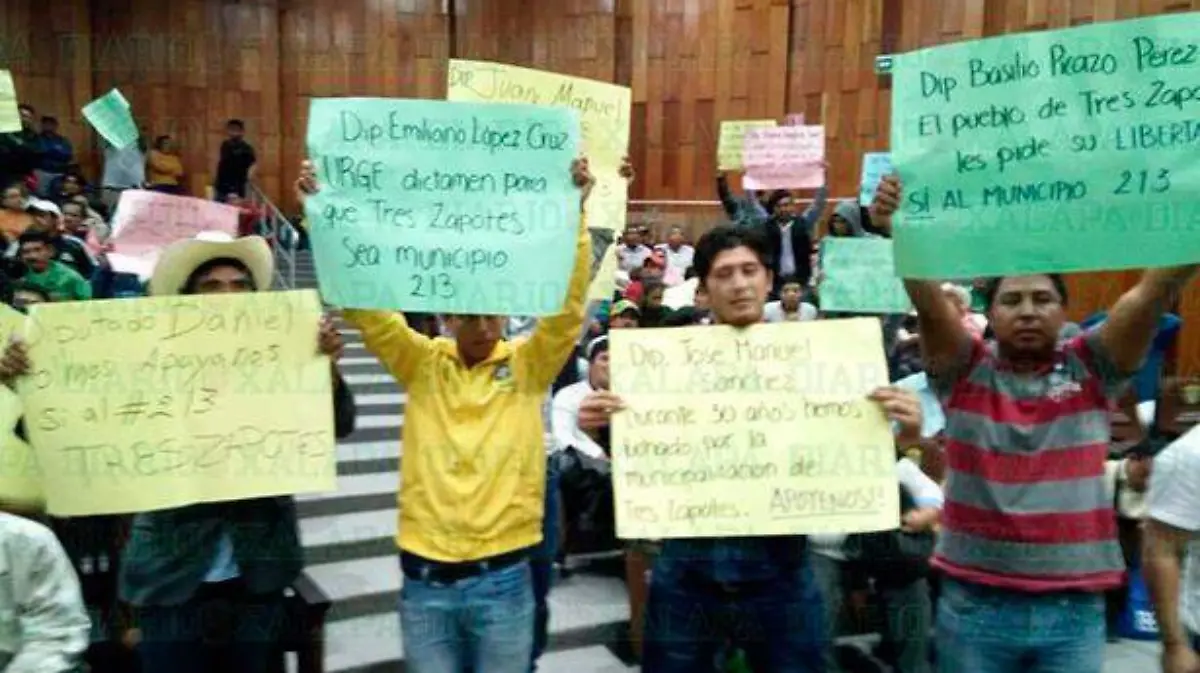 Dip Emiliano López Cruz
URGE dictamen para
que Tres Zapotes
Sea municipio
213
Dip. Juan Manuel
Dip Basilio Picazo Perez
El pueblo de Tres Zapot
les pide su LIBERTA
SI AL MUNICIPIO 213
Diputado Daniel
Apoyanos
Si al #213
TRES ZAPOTES
Dip. Jose Manuel
Sanchez
Durante 30 años hemos
luchado por la
municipalización de
Tres Zapotes. APOYENOS!!
DIARIO XALAPA